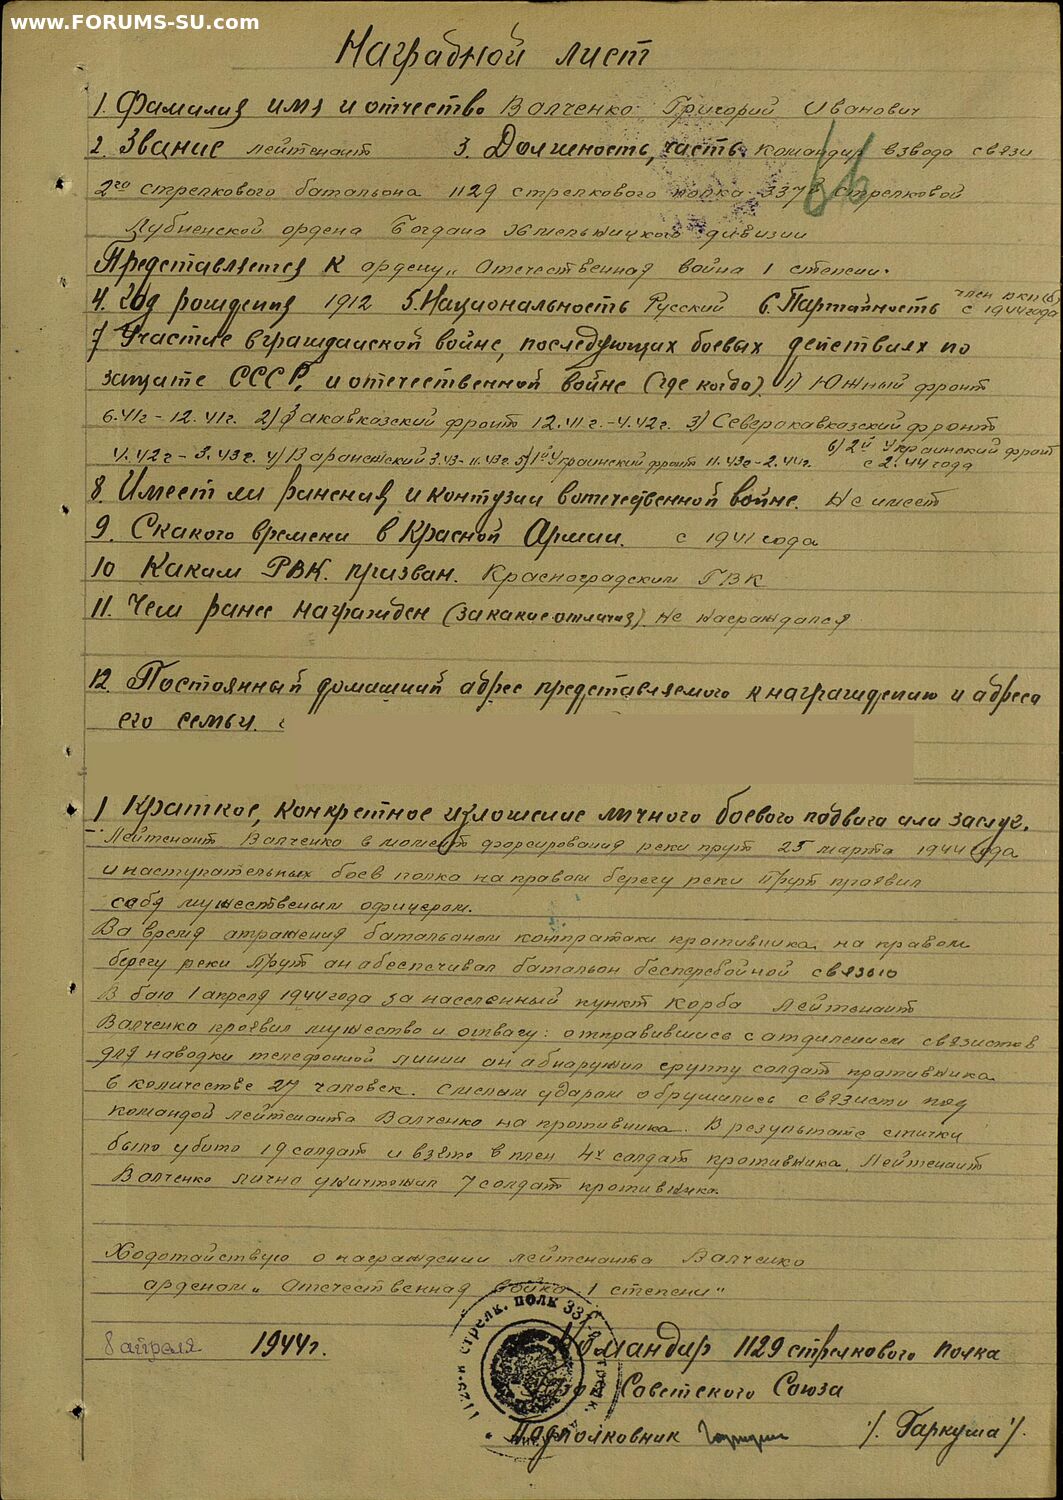 www.FORUMS-SU.com
Наградной лист
1. Фамилия имя и отчество Валченко Григорий Иванович
2. Звание лейтенант 3. Должность, часть командир взвода связи
2го стрелкового батальона 1129 стрелкового полка 337й стрелковой
66
Лубненской ордена Богдана Хмельницкого дивизии
Представляется к ордену „Отечественная война 1 степени.
4. Год рождения 1912 5. Национальность Русский 6. Партийность член ВКП(б)
с 1944 года
7 Участие в гражданской войне, последующих боевых действиях по
защите СССР, и отечественной войне (где когда) 1) Южный фронт
6.41г - 12.41г. 2) Закавказский фронт 12.41г. - 4.42г. 3) Северокавказский фронт
4.42г - 3.43г. 4) Варонежский 3.43 - 11.43г. 5) 1й Украинский фронт 11.43г - 2.44г. 6) 2й Украинский фронт
с 2.44 года
8. Имеет ли ранения и контузии в отечественной войне. Не имеет
9. С какого времени в Красной Армии. с 1941 года
10 Каким РВК. призван. Красноградским ГВК
11. Чем ранее награжден (за какие отличия) не награждался
12. Постоянный домашний адрес представляемого к награждению и адреса
его семьи.
1 Краткое, конкретное изложение личного боевого подвига или заслуг.
Лейтенант Валченко в момент форсирования реки прут 25 марта 1944 года
и наступательных боев полка на правом берегу реки Прут проявил
себя мужественым офицером.
Ва время атражения батальоном контратаки противника на правом
берегу реки Прут он абеспечивал батальон бесперебойной связью
В баю 1 апреля 1944 года за населенный пункт Корба Лейтенант
Валченко проявил мужество и отвагу: отправившись с атделением связистов
для наводки телефонной линии он абнаружил группу солдат противника
в количестве 27 человек. Смелым ударом обрушились связисты под
командой лейтенанта Валченко на противника. В результате стички
было убито 19 солдат и взято в плен 4х солдат противника. Лейтенант
Валченко лично уничтожил 7 солдат противника.
Ходотайствую о награждении лейтенанта Валченко
арденом „Отечественная война 1 степени"
1129-й стрелк. полк 337-й
8 апреля 1944г.
Командир 1129 стрелкового полка
Герой Советского Союза
Подполковник /. Гаркуша /.